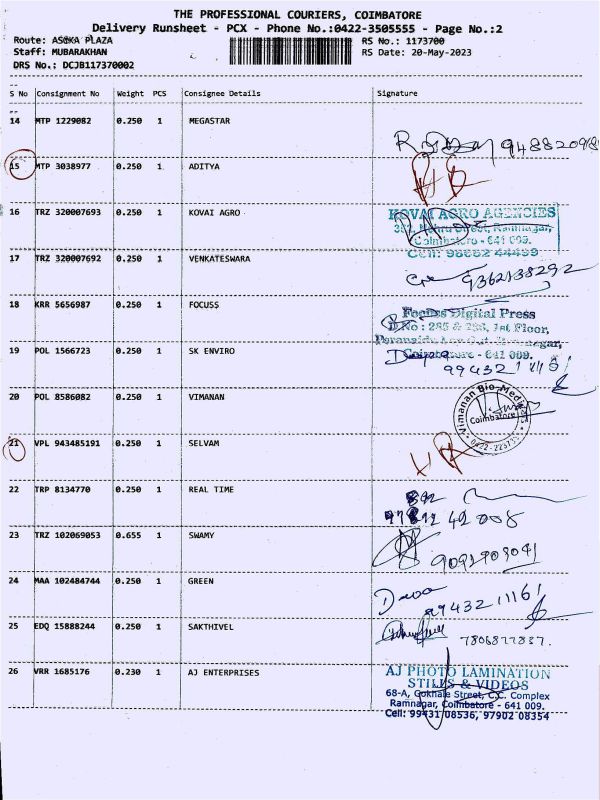 THE PROFESSIONAL COURIERS, COIMBATORE
Delivery Runsheet - PCX - Phone No.:0422-3505555 - Page No.:2
Route: ASOKA PLAZA RS No.: 1173700
Staff: MUBARAKHAN RS Date: 20-May-2023
DRS No.: DCJB117370002
S No Consignment No Weight PCS Consignee Details Signature
14 MTP 1229082 0.250 1 MEGASTAR
15 MTP 3038977 0.250 1 ADITYA
16 TRZ 320007693 0.250 1 KOVAI AGRO
KOVAI AGRO AGENCIES
Coimbatore - 641 009.
Cell: 98662 44499
17 TRZ 320007692 0.250 1 VENKATESWARA
9362138292
18 KRR 5656987 0.250 1 FOCUSS
Focuss Digital Press
D.No : 285 & 286, 1st Floor,
Coimbatore - 641 009.
19 POL 1566723 0.250 1 SK ENVIRO
20 POL 8586082 0.250 1 VIMANAN
Vimanan Bio-Medi
Coimbatore
21 VPL 943485191 0.250 1 SELVAM
22 TRP 8134770 0.250 1 REAL TIME
23 TRZ 102069053 0.655 1 SWAMY
24 MAA 102484744 0.250 1 GREEN
9943211161
25 EDQ 15888244 0.250 1 SAKTHIVEL
26 VRR 1685176 0.230 1 AJ ENTERPRISES
AJ PHOTO LAMINATION
STILLS & VIDEOS
68-A, Gokhale Street, C.C. Complex
Ramnagar, Coimbatore - 641 009.
Cell: 99431 08536, 97902 08354